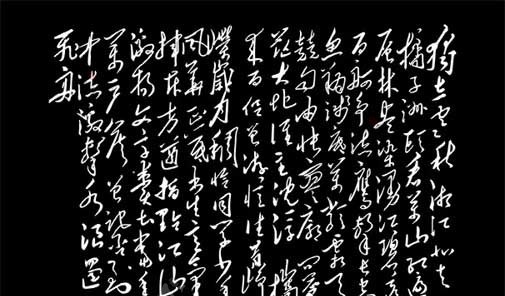 独立寒秋湘江北去
橘子洲头看万山红遍
层林尽染漫江碧透
百舸争流鹰击长空
鱼翔浅底万类霜天
竞自由怅寥廓问苍
茫大地谁主沉浮携
来百侣曾游忆往昔峥
嵘岁月稠恰同学少年
风华正茂书生意气
挥斥方遒指点江山
激扬文字粪土当年
万户侯曾记否到
中流击水浪遏
飞舟